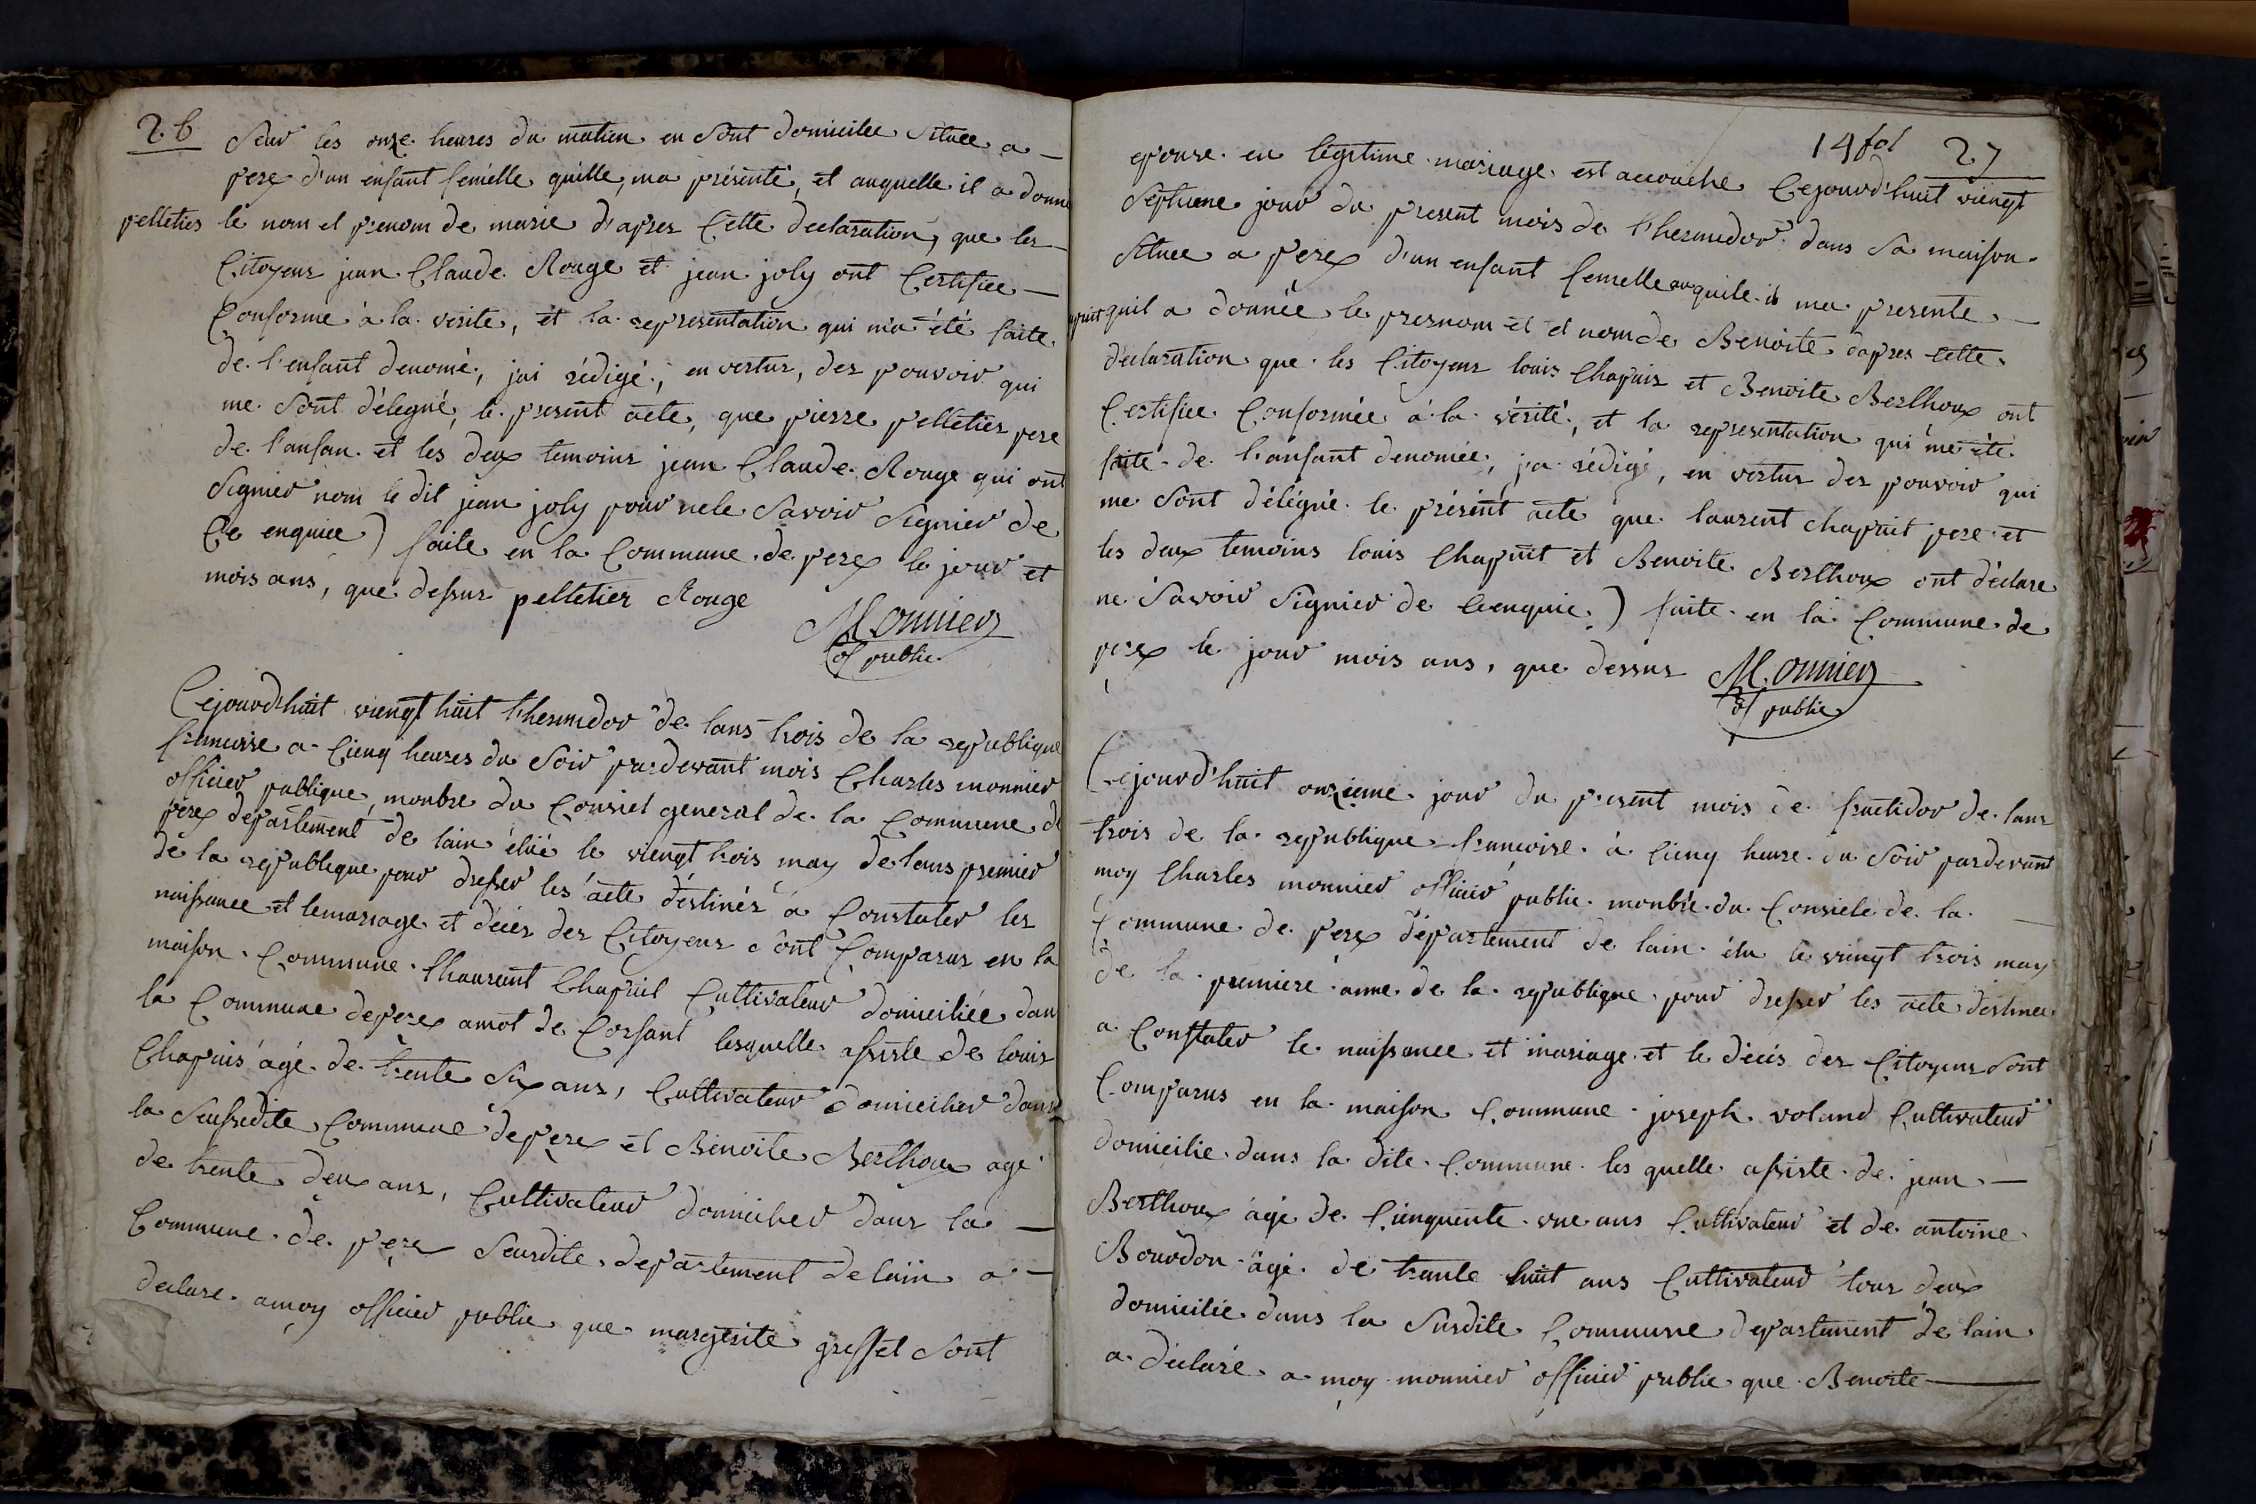 26
Seur les onze heures du matien en Sont domicilee Situee a
perex d'un enfant femélle quille, ma présenté, et auquelle il a donne
pelletier le nom et prenom de marie d'apres Cette declaration, que les
Citoyens jean Claude Rouge et jean joly ont Certifiee
Conforme à la verite, et la representation qui m'a été faite
de l'enfant denomé, jai rédigé, en vertus, des pouvoir qui
me Sont délegué, le present acte, que pierre pelletier pere
de l'anfan et les deux temoins jean Claude Rouge qui ont
Signier nom le dit jean joly pour nele Savoir Signier de
Ce enquiee) faite en la Commune de perex le jour et
mois ans, que dessus pelletier Rouge
Monnier
of public
Cejourd'huit viengt huit thermidor de lans trois de la republique
francoise a Cienq heures du Soir pardevant mois Charles monnier
officier publique, monbre du Consiel general de la Commune de
perex departement de lain élue le viengt trois may de lans premier
de la republeque pour dresser les acte déstinés a Constater les
naissance et lemariage et décés des Citoyens Sont Comparus en la
maison Commune lhaurent Chapuit Cultivateur domiciliée dan
la Commune deperex amot de Corsant lesquelle assiste de louis
Chapuis agé de trente Six ans, Cultivateur domicilier dans
la Seusedite Commune deperex et Benoite Berthoux agé
de trente deux ans, Cultivateur domicilier dans la
Commune de perex Seusdite departement delain a
declare amoy officier publie que margerite greffet Sont
14 fol 27
epouse en légitime mariage est accouche Cejourd'huit viengt
Septieme jour du present mois de thermidor dans Sa maison
Situee a perex d'un enfant femelle auquile il ma presente
quil a donnée le presnom et et nom de Benoite dapres cette
declaration que les Citoyens louis Chapuis et Benoite Berthoux ont
Certifiee Conformée à la vérité, et la representation qui me été
faité de l'anfant denomée, ja rédigé, en vertus des pouvoir qui
me Sont délégué le présént acte que laurent chapuit pere et
les deux temoins louis Chapuit et Benoite Berthoux ont déclare
ne Savoir Signier de Cenquie) faite en la Commune de
perex le jour mois ans, que dessus Monnier
of public
Cejourd'huit onzieme jour du present mois de fructidor de lans
trois de la republique francoise à Cienq heure du Soir pardevant
moy Charles monnier officier public monbre du Consiele de la
Commune de perex département de lain élu le viengt trois may
de la premiere anne de la republique pour dresser les acte destinee
a Constater le naissance et mariage et le décés des Citoyens Sont
Comparus en la maison Commune joseph voland Cultivateur
domicilie dans la dite Commune les quelle assiste de jean
Berthoux âgé de Cienquente une ans Cultivateur et de antoine
Bourdon âgé de trante huit ans Cultivateur tous deux
domicilie dans la Susdite Commune departement de lain
a déclaré a moy monnier officier publie que Benoite